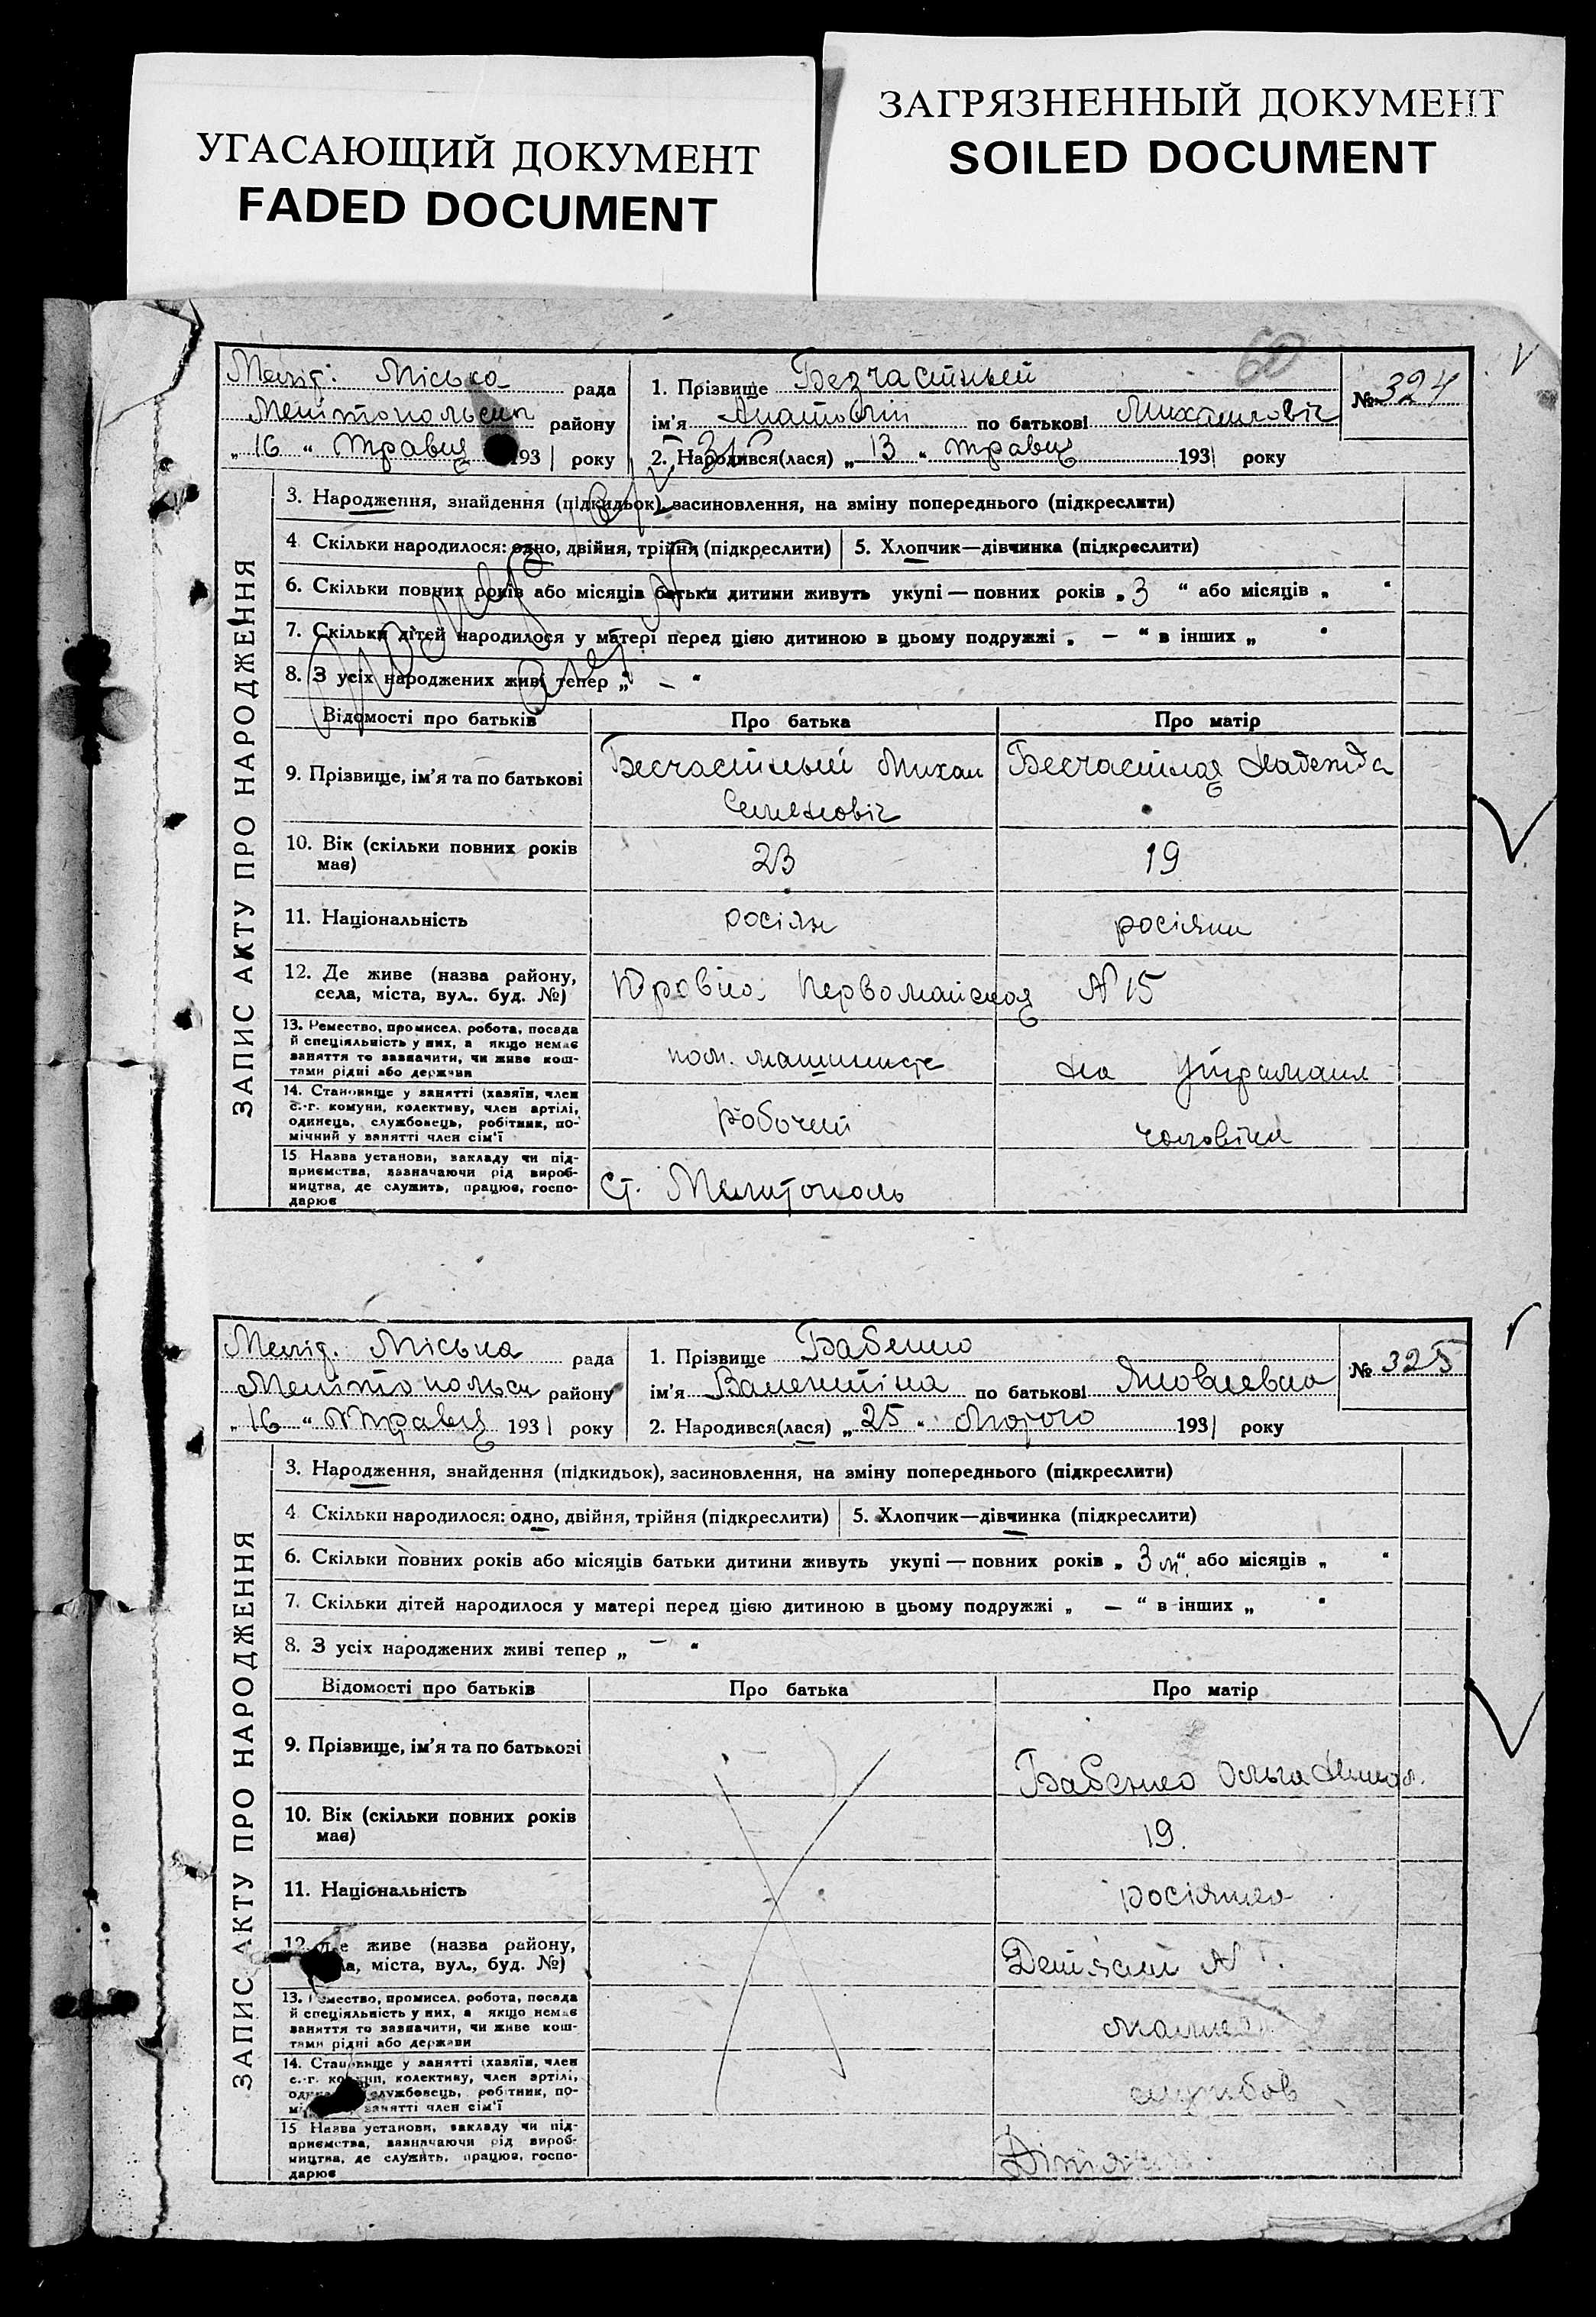 УГАСАЮЩИЙ ДОКУМЕНТ
FADED DOCUMENT
ЗАГРЯЗНЕННЫЙ ДОКУМЕНТ
SOILED DOCUMENT
60
Меліт. Міська рада
Мелітопольськ району
„ 16 “ травня 1931 року
1. Прізвище Безчастный
ім’я Анатолій по батькові Михайловіч
2. Народився(лася) „ 13 “ травня 1931 року
№ 324
ЗАПИС АКТУ ПРО НАРОДЖЕННЯ
3. Народження, знайдення (підкидьок), засиновлення, на зміну попереднього (підкреслити)
4 Скільки народилося: одно, двійня, трійня (підкреслити) 5. Хлопчик—дівчинка (підкреслити)
6. Скільки повних років або місяців батьки дитини живуть укупі — повних років „ 3 “ або місяців „ “
7. Скільки дітей народилося у матері перед цією дитиною в цьому подружжі „ — “ в інших „ “
8. З усіх народжених живі тепер „ — “
Відомості про батьків Про батька Про матір
9. Прізвище, ім’я та по батькові Бесчастный Михаил Бесчастная Надежда
Семеновіч
10. Вік (скільки повних років має) 23 19
11. Національність росіян росіянка
12. Де живе (назва району, села, міста, вул. буд. №) Первомайская № 15
13. Ремество, промисел, робота, посада й спеціяльність у них, а якщо немає заняття то зазначити, чи живе коштами рідні або держави пом. машиніста на утриманні
14. Становище у занятті (хазяїн, член с.-г. комуни, колективу, член артілі, одинець, службовець, робітник, помічний у занятті член сім’ї робочий чоловіка
15 Назва установи, закладу чи підприємства, зазначаючи рід виробництва, де служить, працює, господарює ст. Мелитополь
Меліт. Міська рада
Мелітопольськ району
„ 16 “ травня 1931 року
1. Прізвище Бабенко
ім’я Валентіна по батькові Яковлевна
2. Народився(лася) „ 25 “ Лютого 1931 року
№ 325
ЗАПИС АКТУ ПРО НАРОДЖЕННЯ
3. Народження, знайдення (підкидьок), засиновлення, на зміну попереднього (підкреслити)
4 Скільки народилося: одно, двійня, трійня (підкреслити) 5. Хлопчик—дівчинка (підкреслити)
6. Скільки повних років або місяців батьки дитини живуть укупі — повних років „ 3 м “ або місяців „ “
7. Скільки дітей народилося у матері перед цією дитиною в цьому подружжі „ — “ в інших „ “
8. З усіх народжених живі тепер „ — “
Відомості про батьків Про батька Про матір
9. Прізвище, ім’я та по батькові Бабенко Ольга Никол.
10. Вік (скільки повних років має) 19.
11. Національність росіянка
12. Де живе (назва району, села, міста, вул., буд. №)
13. Ремество, промисел, робота, посада й спеціяльність у них, а якщо немає заняття то зазначити, чи живе коштами рідні або держави
14. Становище у занятті (хазяїн, член с.-г. комуни, колективу, член артілі, одинець, службовець, робітник, помічний у занятті член сім’ї службов
15 Назва установи, закладу чи підприємства, зазначаючи рід виробництва, де служить, працює, господарює